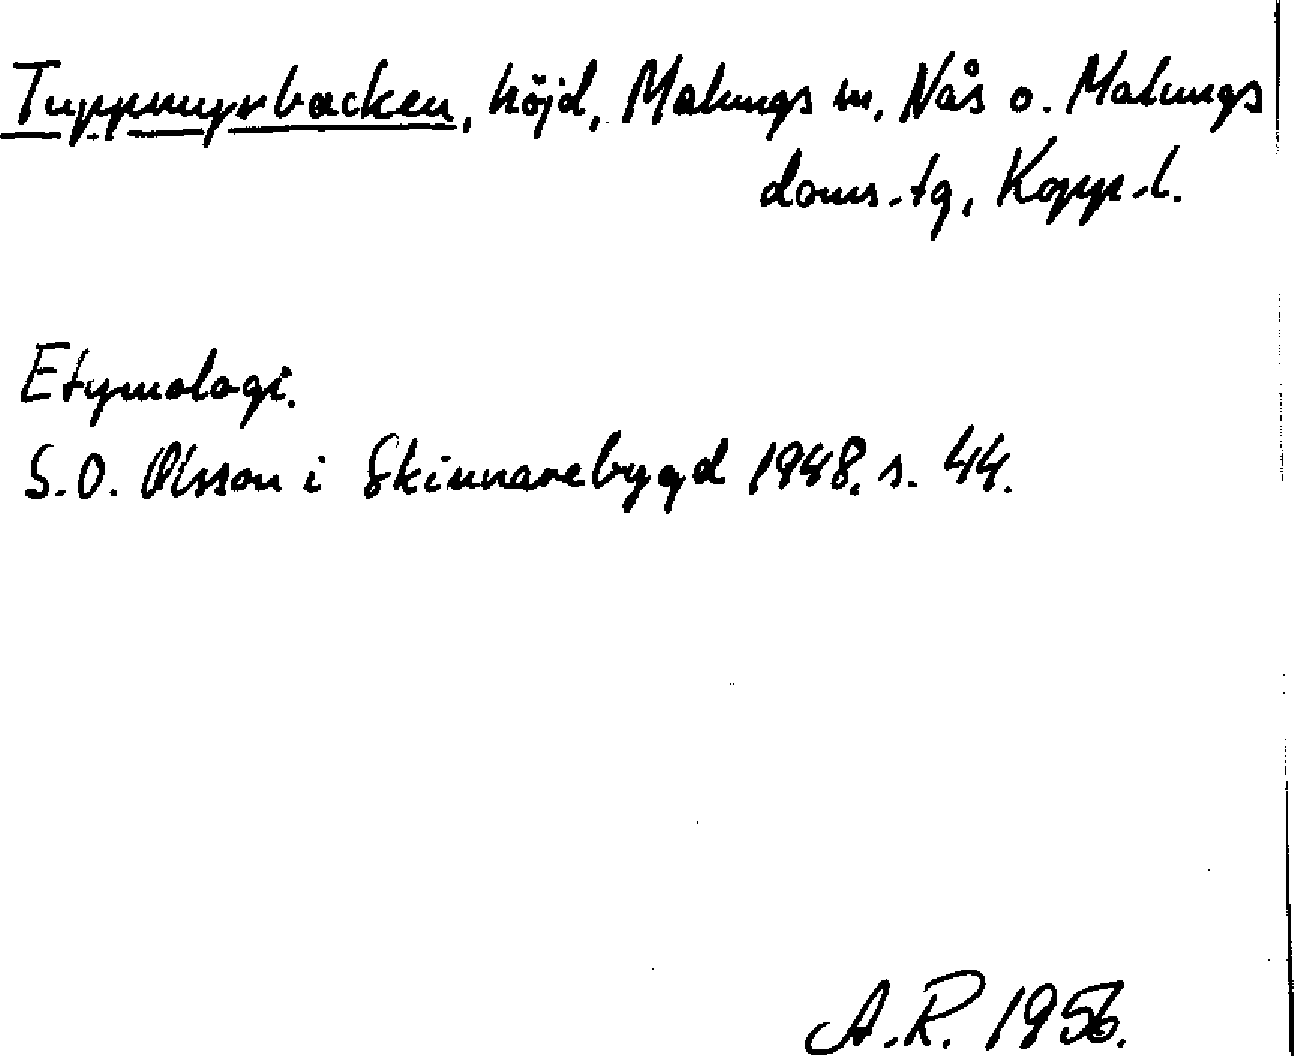 Tuppmyrbacken, höjd, Malungs sn, Nås o. Malungs
doms.-tg, Kopp.-l.
Etymologi.
S.O. Olsson i Skinnarebygd 1948, s. 44.
A.R. 1956.